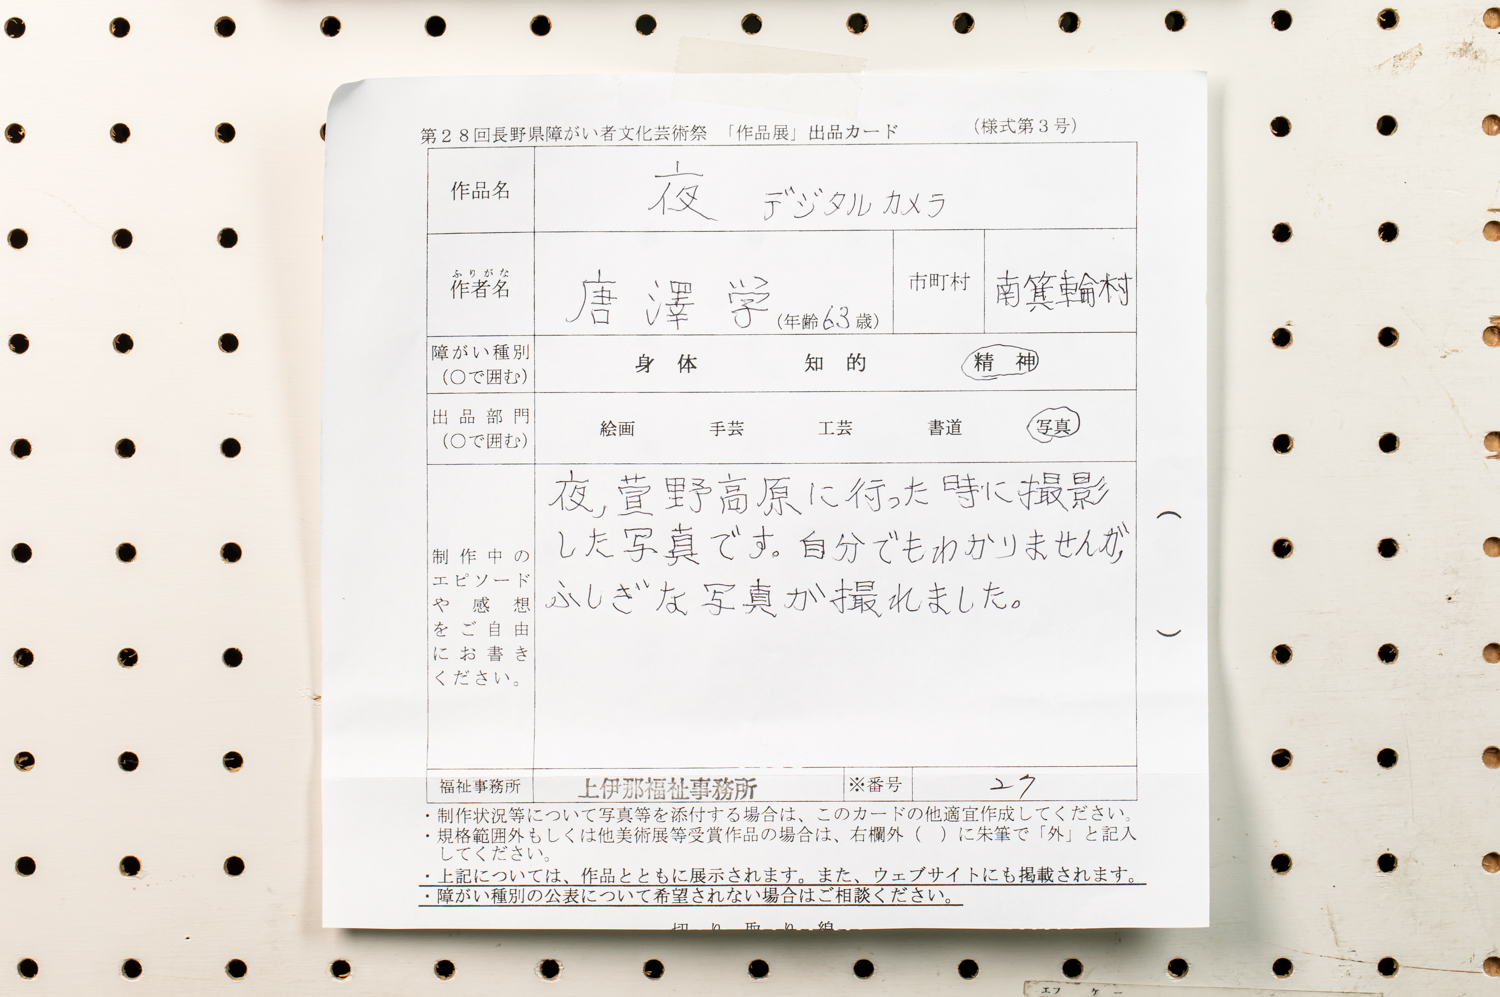 第28回長野県障がい者文化芸術祭 「作品展」出品カード （様式第３号）
作品名 夜 デジタルカメラ
ふりがな
作者名 唐澤学 （年齢 63 歳） 市町村 南箕輪村
障がい種別
（○で囲む） 身体 知的 精神
出品部門
（○で囲む） 絵画 手芸 工芸 書道 写真
夜,萱野高原に行った時に撮影
した写真です。自分でもわかりませんが,
ふしぎな写真が撮れました。
制作中の
エピソード
や感想
をご自由
にお書き
ください。
（ ）
福祉事務所 上伊那福祉事務所 ※番号 27
・制作状況等について写真等を添付する場合は、このカードの他適宜作成してください。
・規格範囲外もしくは他美術展等受賞作品の場合は、右欄外（ ）に朱筆で「外」と記入
してください。
・上記については、作品とともに展示されます。また、ウェブサイトにも掲載されます。
・障がい種別の公表について希望されない場合はご相談ください。
切り取り線